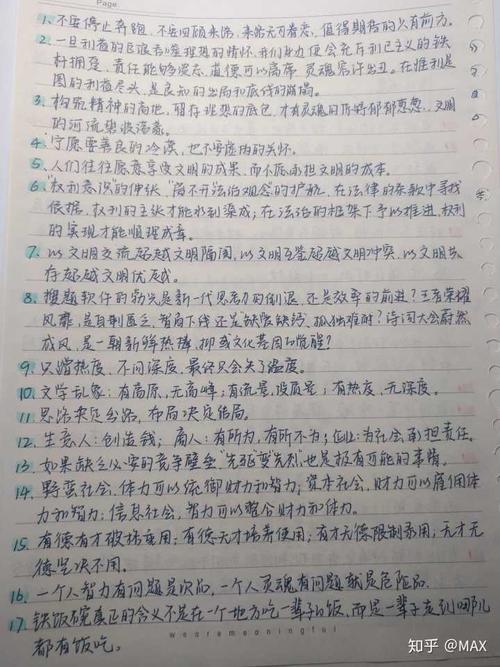 1. 不要停止奔跑,不要回顾来路,来路无可眷恋,值得期待的只有前方。
2. 一旦利益的只顾考虑理想的情怀,我们身边便会充斥利己主义的铁
杆拥趸,责任能够变态,道德可以离席,灵魂容许出丑。在惟利是
图的利益尽头,是良知的出局和底线的崩塌。
3. 构筑精神的高地,留存理想的底色,才有灵魂的芳特郁郁葱葱,文明
的河流碧波荡漾。
4. 宁愿要善良的冷漠,也不要虚伪的关怀。
5. 人们往往愿意享受文明的成果,而不愿承担文明的成本。
6. "权利意识"的伸张,离不开法治观念的护航,在法律的条款中寻找
依据,权利的主张才能水到渠成;在法治的框架下予以推进,权利
的实现才能顺理成章。
7. 以文明交流超越文明隔阂,以文明互鉴超越文明冲突,以文明共
存超越文明优越。
8. 搜题软件的勃兴是新一代思考力的倒退,还是效率的前进?王者荣耀
风靡,是自制匮乏,智商下线还是缺爱缺钙、孤独难耐?诗词大会蔚然
成风,是一朝新鲜热捧,抑或文化基因的觉醒?
9. 只蹭热度,不问深度,最终只会失了温度。
10. 文学乱象:有高原,无高峰;有流量,没质量;有热度,无深度。
11. 思路决定出路,布局决定结局。
12. 生意人:创造钱;商人:有所为,有所不为;企业:为社会承担责任。
13. 如果缺乏必要的竞争壁垒"先驱变先烈"也是极有可能的事情。
14. 野蛮社会,体力可以统御财力和智力;资本社会,财力可以雇佣体
力和智力;信息社会,智力可以整合财力和体力。
15. 有德有才破格重用;有德无才培养使用;有才无德限制录用;无才无
德坚决不用。
16. 一个人智力有问题是次品,一个人灵魂有问题就是危险品。
17. 铁饭碗真正的含义不是在一个地方吃一辈子的饭,而是一辈子走到哪儿
都有饭吃。
wearemeaningful
知乎 @MAX